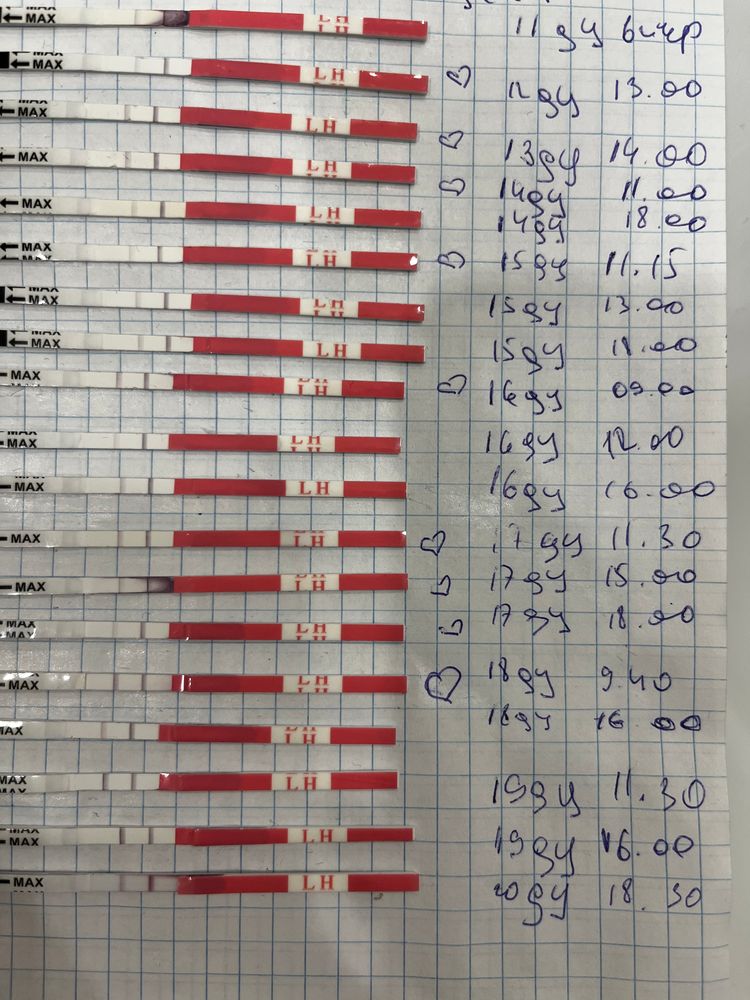 MAX LH 11 дц вичр
MAX LH 12 дц 13.00
LH
MAX LH 13 дц 14.00
MAX LH 14 дц 11.00
14 дц 18.00
MAX LH 15 дц 11.15
MAX LH 15 дц 13.00
MAX LH 15 дц 18.00
MAX LH 16 дц 09.00
MAX LH 16 дц 12.00
MAX LH 16 дц 16.00
MAX LH 17 дц 11.30
MAX LH 17 дц 15.00
MAX LH 17 дц 18.00
MAX LH 18 дц 9.40
MAX LH 18 дц 16.00
MAX LH 19 дц 11.30
MAX LH 19 дц 16.00
MAX LH 20 дц 18.30